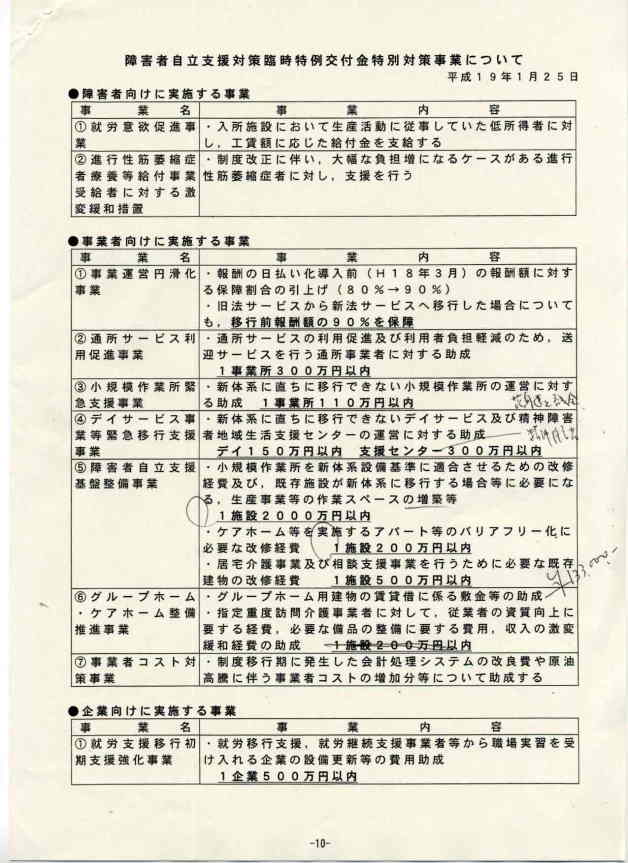 障害者自立支援対策臨時特例交付金特別対策事業について
平成19年1月25日
●障害者向けに実施する事業
事業名 事業内容
①就労意欲促進事業
・入所施設において生産活動に従事していた低所得者に対
し，工賃額に応じた給付金を支給する
②進行性筋萎縮症
者療養等給付事業
受給者に対する激
変緩和措置
・制度改正に伴い，大幅な負担増になるケースがある進行
性筋萎縮症者に対し，支援を行う
●事業者向けに実施する事業
事業名 事業内容
①事業運営円滑化
事業
・報酬の日払い化導入前（H18年3月）の報酬額に対す
る保障割合の引上げ（80％→90％）
・旧法サービスから新法サービスへ移行した場合について
も，移行前報酬額の90％を保障
②通所サービス利
用促進事業
・通所サービスの利用促進及び利用者負担軽減のため，送
迎サービスを行う通所事業者に対する助成
1事業所300万円以内
③小規模作業所緊
急支援事業
・新体系に直ちに移行できない小規模作業所の運営に対す
る助成 1事業所110万円以内
④デイサービス事
業等緊急移行支援
事業
・新体系に直ちに移行できないデイサービス及び精神障害
者地域生活支援センターの運営に対する助成
デイ150万円以内 支援センター300万円以内
⑤障害者自立支援
基盤整備事業
・小規模作業所を新体系設備基準に適合させるための改修
経費及び，既存施設が新体系に移行する場合等に必要にな
る，生産事業等の作業スペースの増築等
1施設2000万円以内
・ケアホーム等を実施するアパート等のバリアフリー化に
必要な改修経費 1施設200万円以内
・居宅介護事業及び相談支援事業を行うために必要な既存
建物の改修経費 1施設500万円以内
¥133,000.-
⑥グループホーム
・ケアホーム整備
推進事業
・グループホーム用建物の賃貸借に係る敷金等の助成
・指定重度訪問介護事業者に対して，従業者の資質向上に
要する経費，必要な備品の整備に要する費用，収入の激変
緩和経費の助成 1施設200万円以内
⑦事業者コスト対
策事業
・制度移行期に発生した会計処理システムの改良費や原油
高騰に伴う事業者コストの増加分等について助成する
●企業向けに実施する事業
事業名 事業内容
①就労支援移行初
期支援強化事業
・就労移行支援，就労継続支援事業者等から職場実習を受
け入れる企業の設備更新等の費用助成
1企業500万円以内
-10-